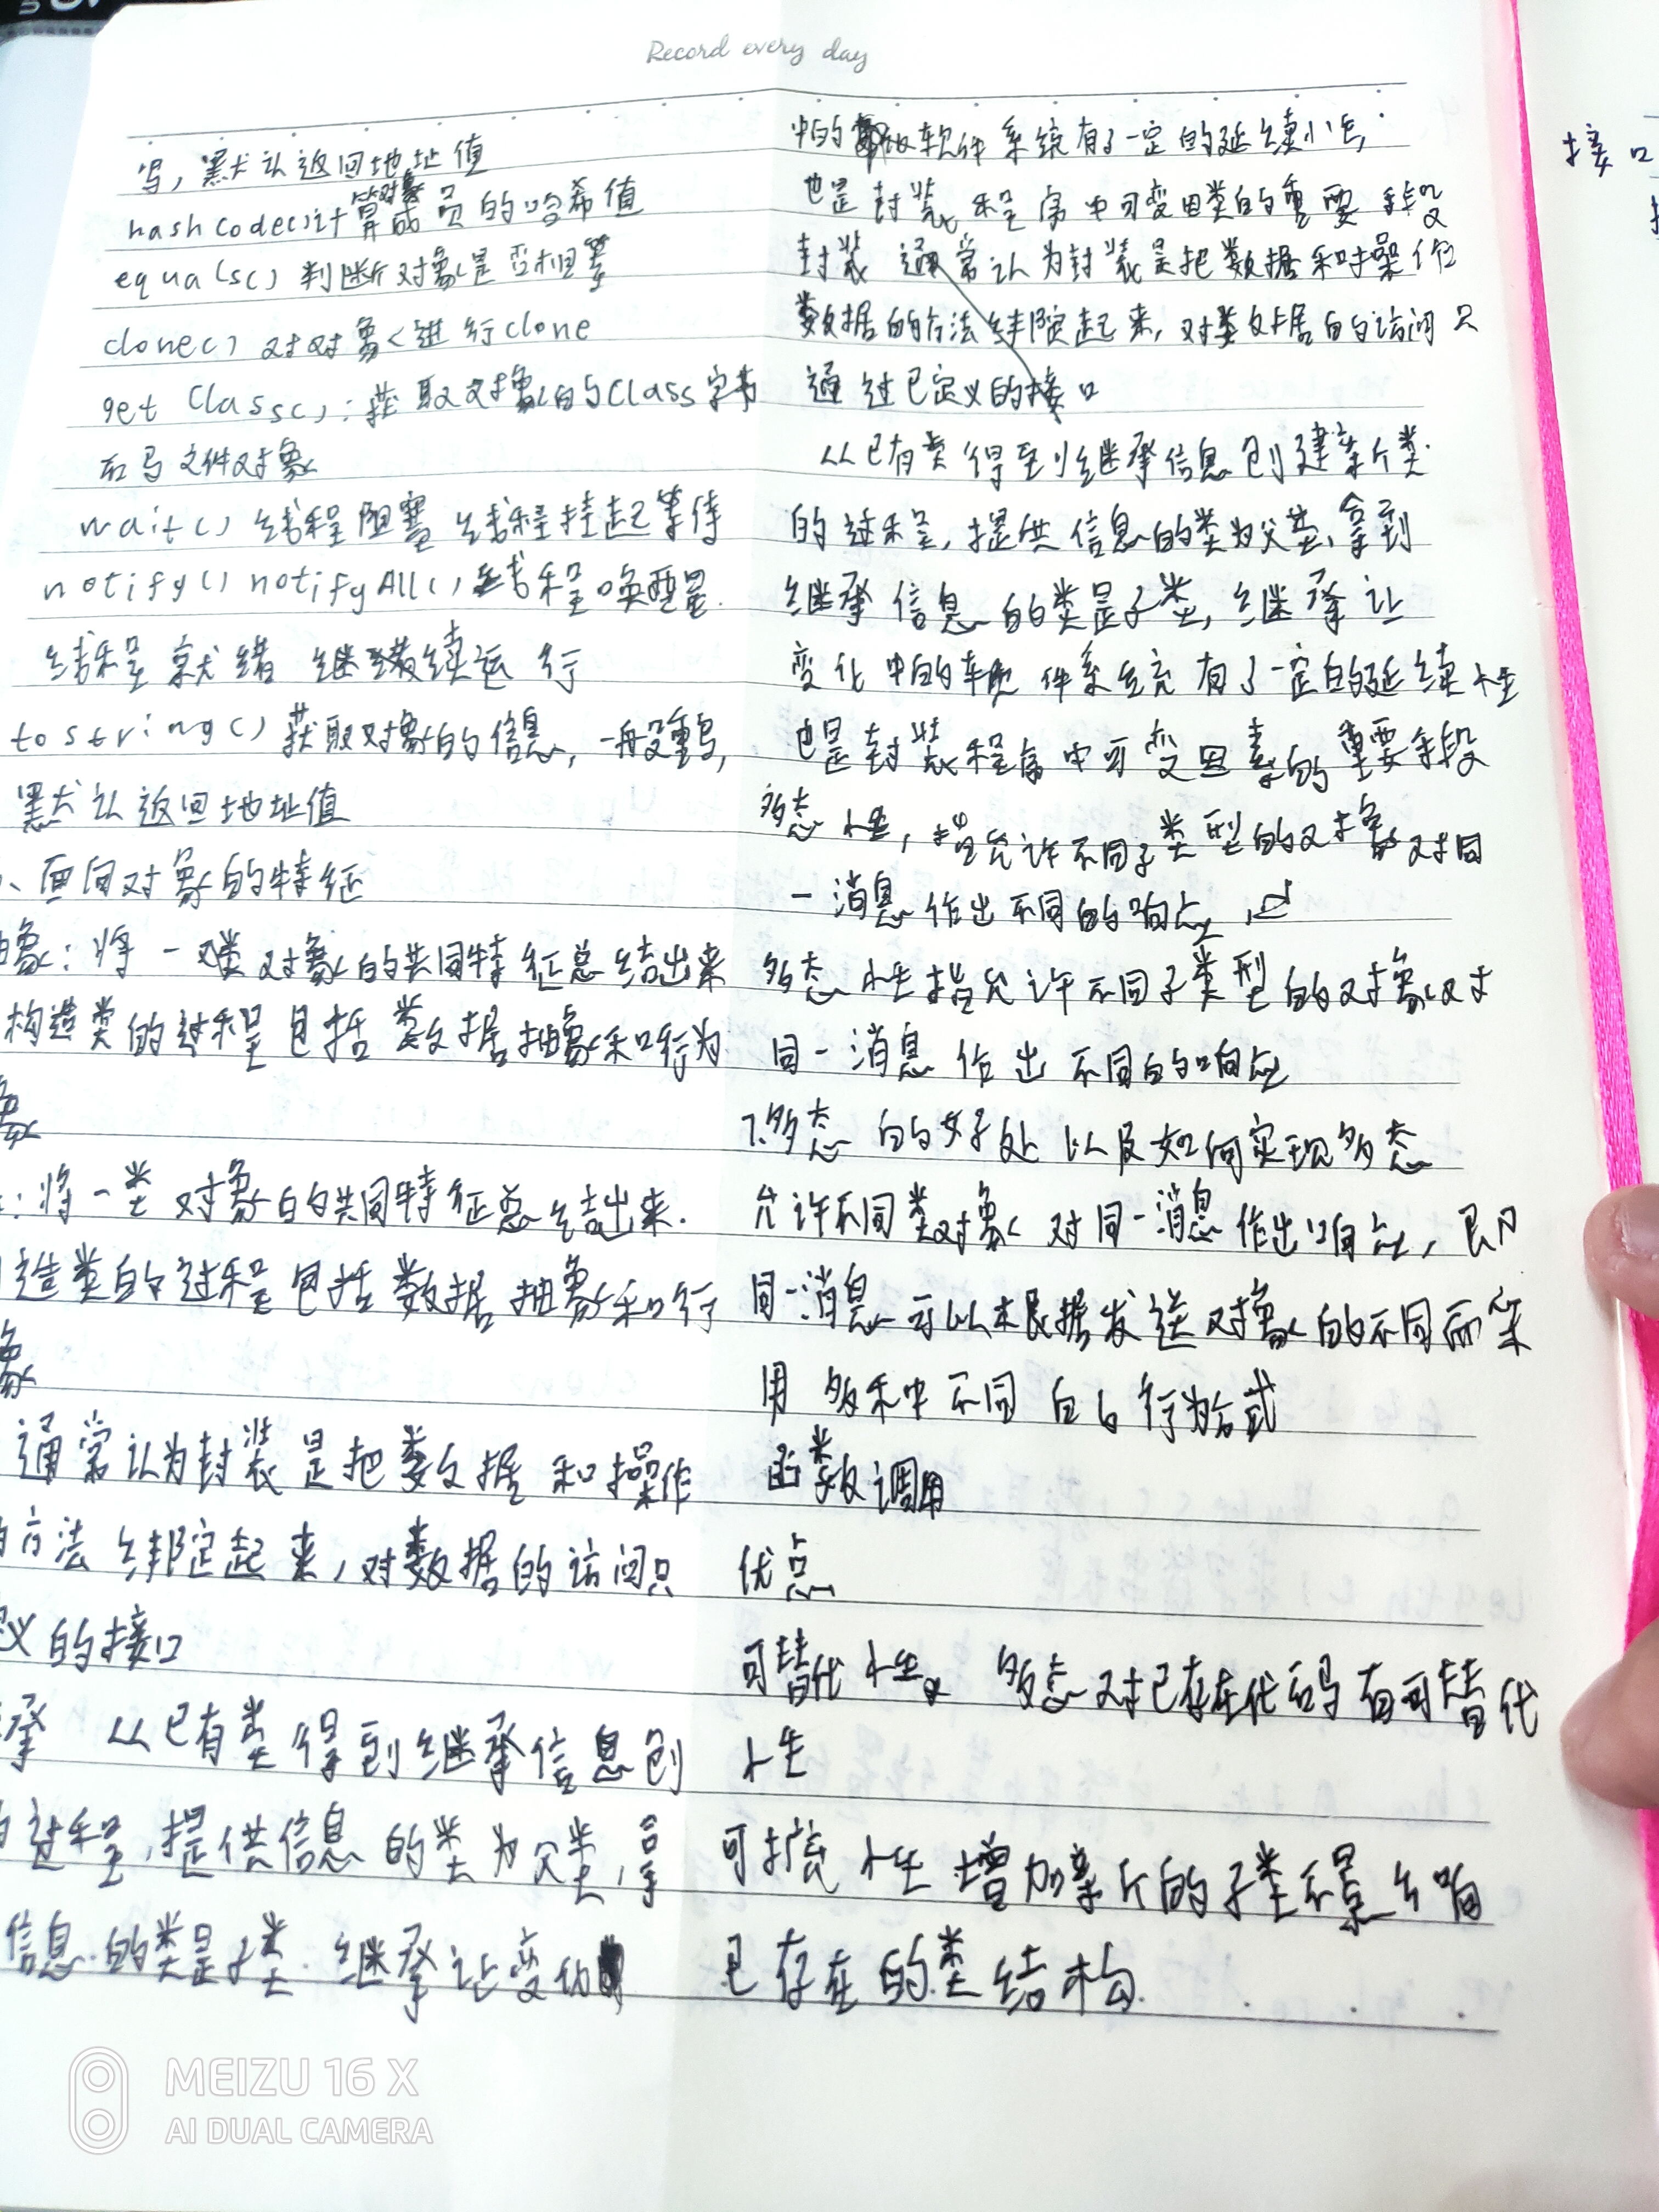 Record every day
写，默认返回地址值
hashcode()计算对象成员的哈希值
equals() 判断对象是否相等
clone() 对对象进行clone
getClass()：获取对象的Class字节
码文件对象
wait() 线程阻塞 线程挂起等待
notify() notifyAll() 线程唤醒
线程就绪 继续运行
tostring() 获取对象的信息，一般重写，
默认返回地址值
、面向对象的特征
象：将一类对象的共同特征总结出来
构造类的过程包括数据抽象和行为
象
：将一类对象的共同特征总结出来.
造类的过程包括数据抽象和行
象
通常认为封装是把数据和操作
方法绑定起来，对数据的访问只
义的接口
承 从已有类得到继承信息创
过程，提供信息的类为父类，拿
信息的类是子类.继承让变化
中的软件系统有了一定的延续性
也是封装程序中可变因素的重要手段
封装 通常认为封装是把数据和对操作
数据的方法绑定起来，对数据的访问只
通过已定义的接口
从已有类得到继承信息创建新类
的过程，提供信息的类为父类，拿到
继承信息的类是子类，继承让
变化中的软件系统有了一定的延续性
也是封装程序中可变因素的重要手段
多态性，指允许不同子类型的对象对同
一消息作出不同的响应，
多态性指允许不同子类型的对象对
同一消息作出不同的响应
7.多态的好处以及如何实现多态
允许不同类对象对同一消息作出响应，即
同一消息可以根据发送对象的不同而采
用多种不同的行为方式
函数调用
优点
可替代性。多态对已存在代码有可替代
性
可扩充性增加新的子类不影响
已存在的类结构.
接口
MEIZU 16 X
AI DUAL CAMERA